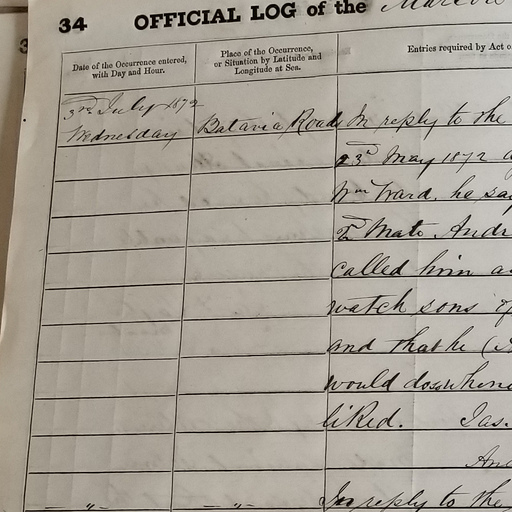 34 OFFICIAL LOG of the
Date of the Occurrence entered, with Day and Hour.
Place of the Occurrence, or Situation by Latitude and Longitude at Sea.
Entries required by Act o
3rd July 1872
Wednesday
Batavia Roads
In reply to the
23d May 1872 a
Wm Ward, he say
2d Mate. Andr
called him a
watch sons of
and that he (
would do when
liked. Jas.
And
" " In reply to the